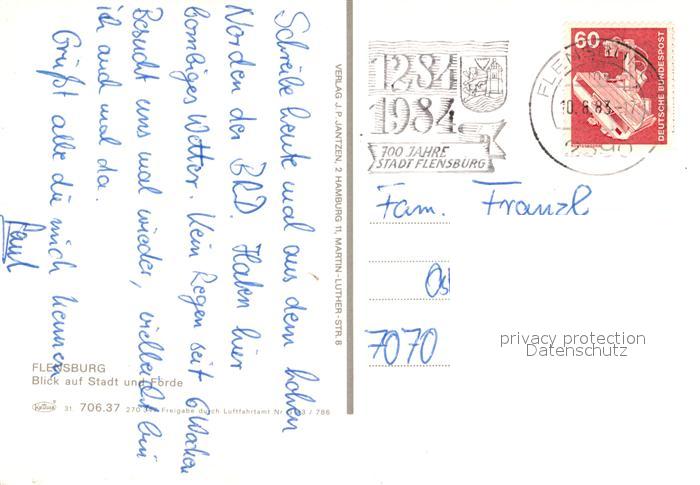 Schreibe heute mal aus dem hohen
Norden der BRD. Haben hier
bombiges Wetter. Kein Regen seit 6 Wochen
Besucht uns mal wieder, vielleicht bin
ich auch mal da.
Grüßt alle die mich kennen
Paul
FLENSBURG
Blick auf Stadt und Förde
31. 706.37 270 Freigabe durch Luftfahrtamt / 786
VERLAG J. P. JANTZEN, 2 HAMBURG 11, MARTIN-LUTHER-STR. 8
1284
1984
700 JAHRE
STADT FLENSBURG
FLENSBURG
10.8.83
2390
60
DEUTSCHE BUNDESPOST
Fam. Franzl
7070
privacy protection
Datenschutz